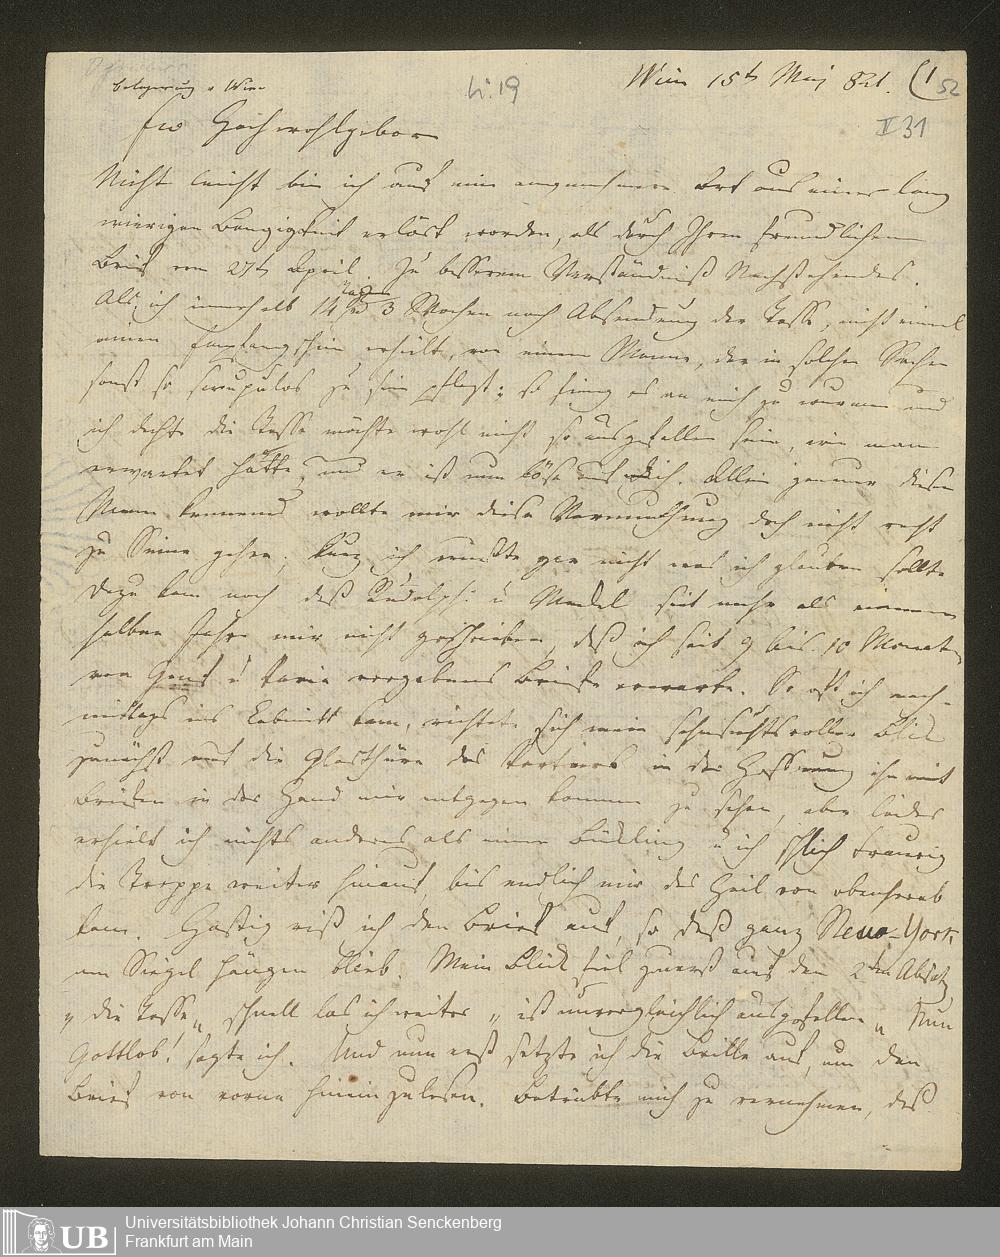 Wien 15t Maj 821. (1
52
Li. 19
II 31
Ew Hochwohlgeborn
Nicht leicht bin ich auf eine angenehmere Art aus einer lang
wierigen Bangigkeit erlöst worden, als durch Ihren freundlichen
Brief vom 27t April. Zu besserem Verständniß Nachstehendes.
Als ich innerhalb 14 Tagen und 3 Wochen nach Absendung der Tasse, nicht einmal
einen Empfangschein erhielte, von einem Manne, der in solchen Sachen
sonst so scrupulos zu sein pflegt; so fieng es an mich zu wurmen und
ich dachte die Tasse möchte wohl nicht so ausgefallen sein, wie man
erwartet hätte, und er ist nun böse auf mich. Allein genauer diesen
Mann kennend wollte mir diese Vermuthung doch nicht recht
zu Sinne gehen; kurz ich wußte gar nicht was ich glauben sollte
dazu kam noch daß Rudolphi u seit mehr als einem
halben Jahre mir nicht geschrieben, daß ich seit 9 bis 10 Monaten
von Genf u Pavia vergebens Briefe erwarte. So oft ich nach-
mittags ins Cabinett kam, richtete sich mein sehnsuchtsvoller Blick
zunächst auf die Glasthüre des Portiers in der Hoffnung ihn mit
Briefen in der Hand mir entgegen kommen zu sehen, aber leider
erhielt ich nichts anderes als einen Bückling u ich schlich traurig
die Treppe weiter hinauf, bis endlich mir das Heil von obenherab
kam. Hastig riß ich den Brief auf, so daß ganz New-York
am Siegel hängen blieb. Mein Blick fiel zuerst auf den 2ten Absatz
„die Tasse„ schnell las ich weiter „ist unvergleichlich ausgefallen„ Nun
Gottlob! sagte ich. Und nun erst setzte ich die Brille auf, um den
Brief von vorne hineinzulesen. Betrübte mich zu vernehmen, daß
Universitätsbibliothek Johann Christian Senckenberg
Frankfurt am Main
UB